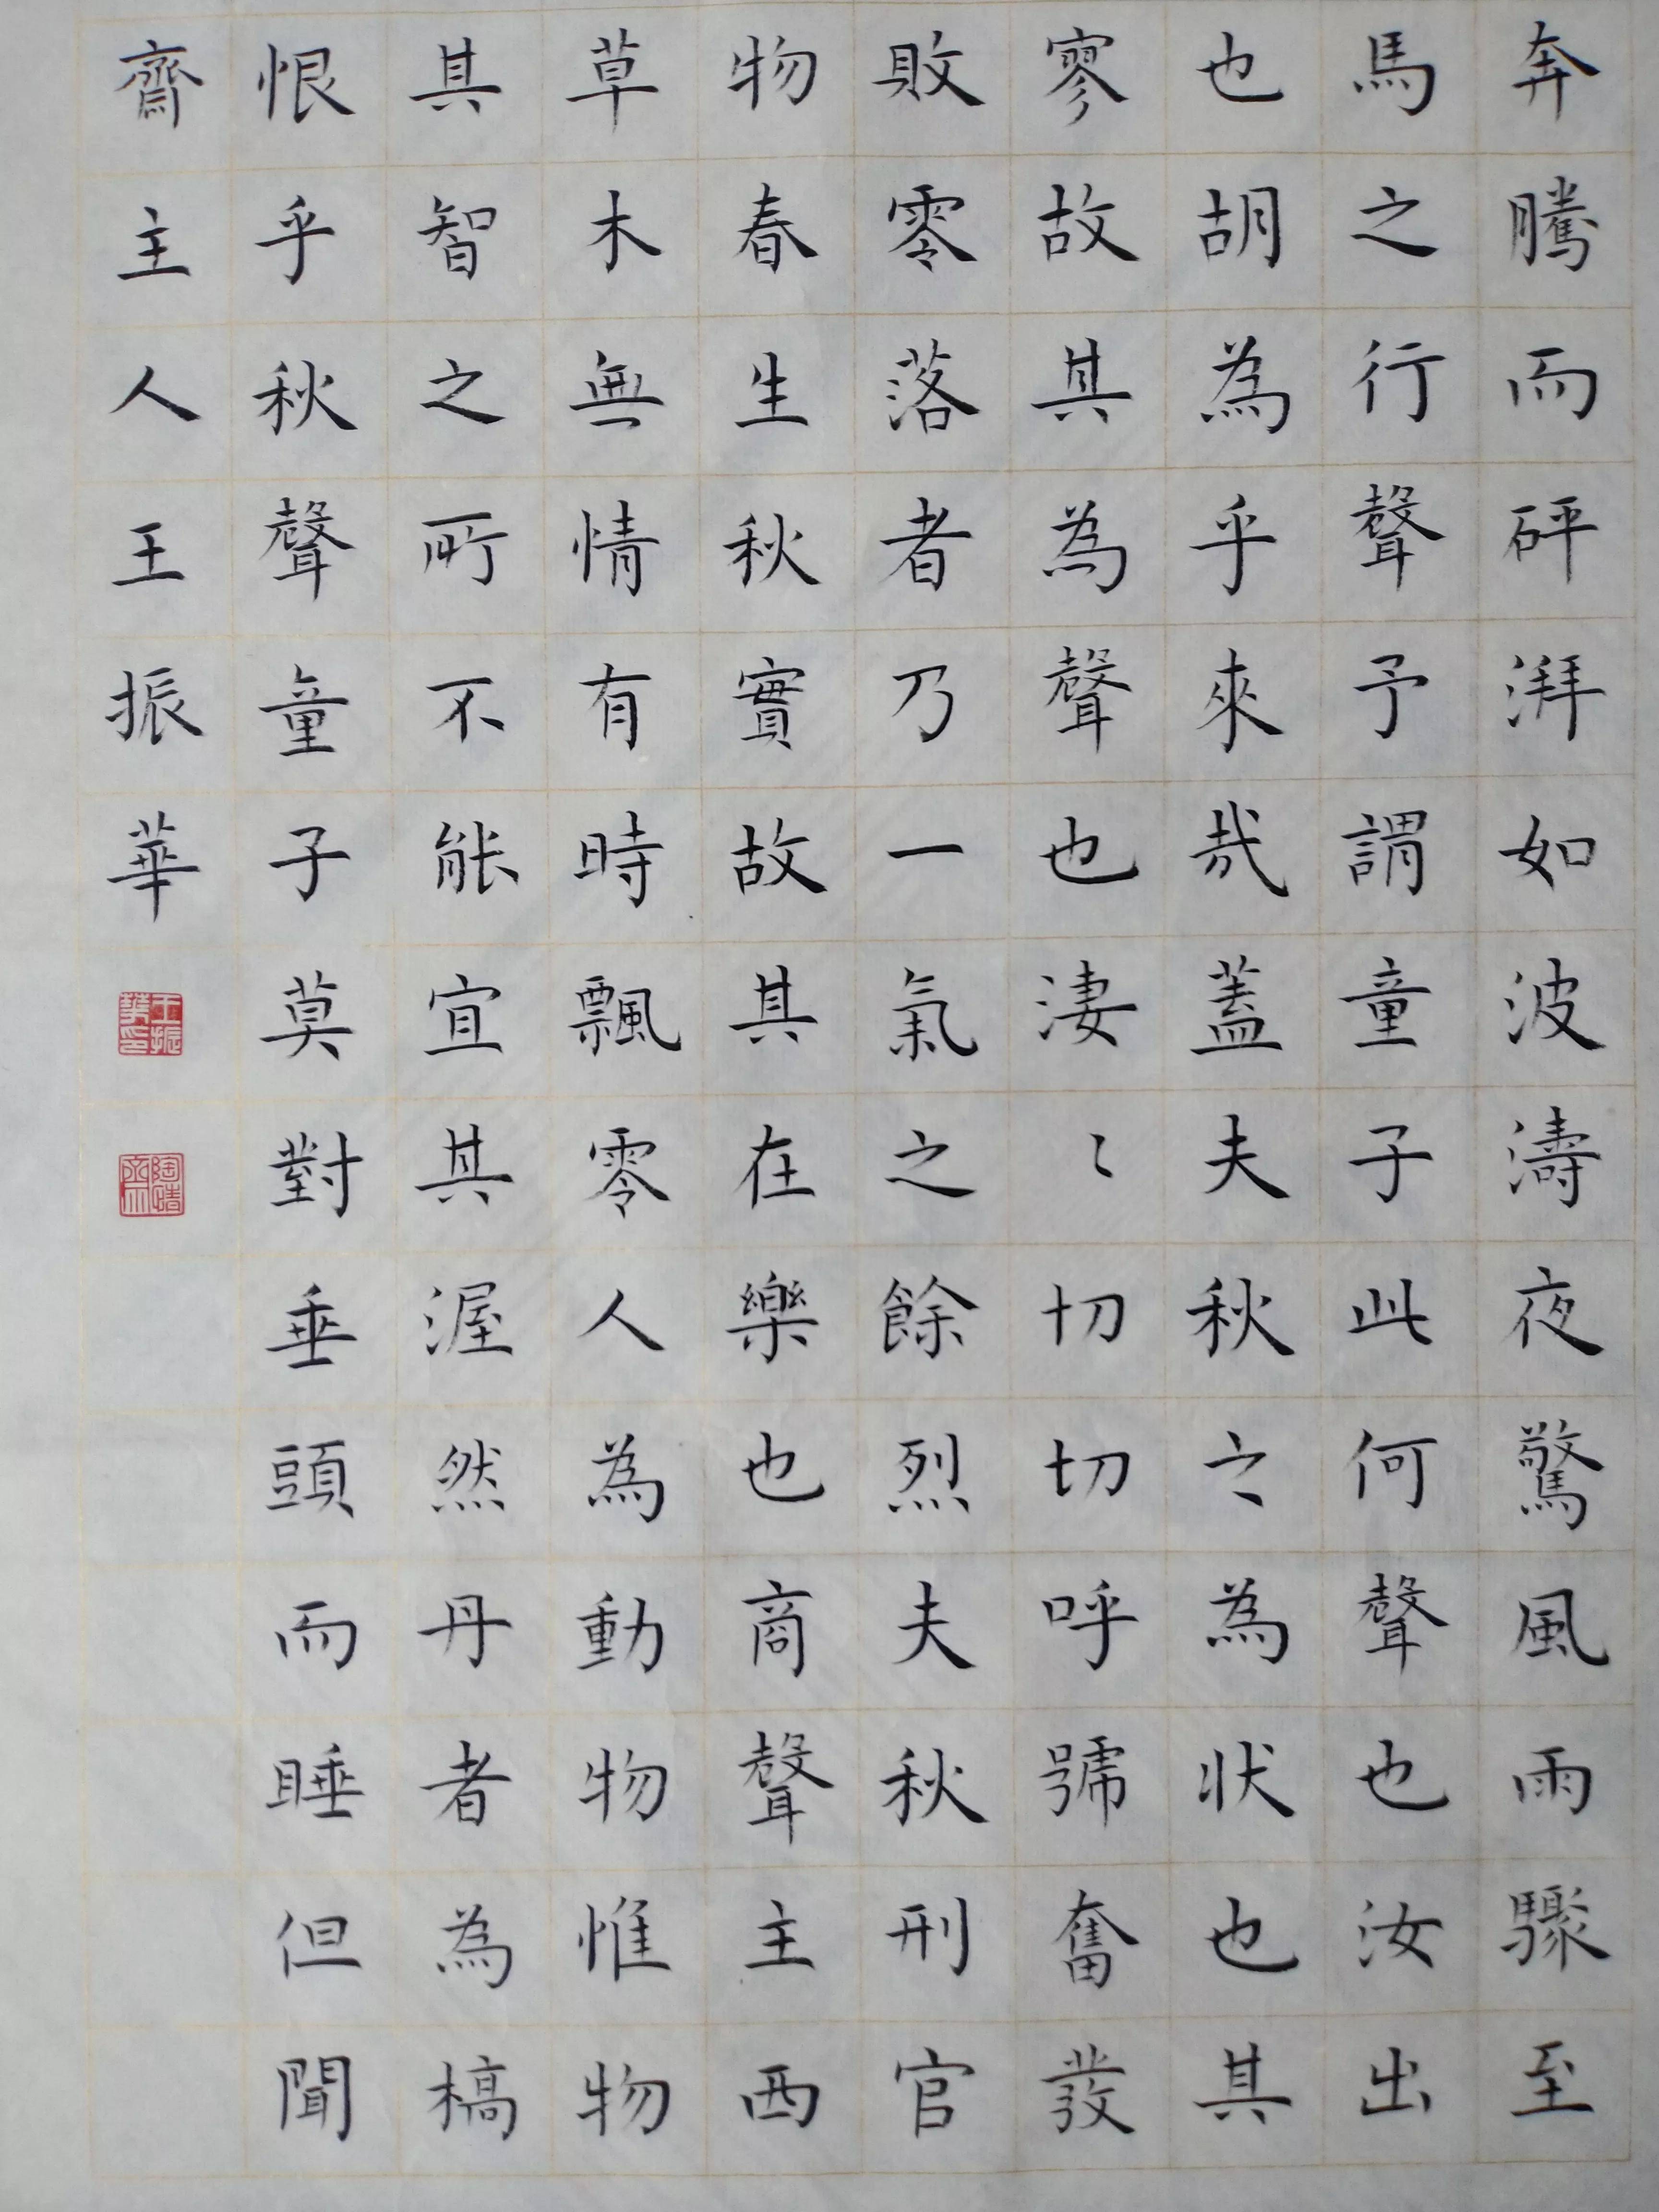 奔騰而砰湃如波濤夜驚風雨驟至
馬之行聲予謂童子此何聲也汝出
也胡為乎來哉蓋夫秋之為狀也其
寥故其為聲也淒〻切切呼號奮發
敗零落者乃一氣之餘烈夫秋刑官
物春生秋實故其在樂也商聲主西
草木無情有時飄零人為動物惟物
其智之所不能宜其渥然丹者為槁
恨乎秋聲童子莫對垂頭而睡但聞
齋主人王振華
王振華印
陶靖齋